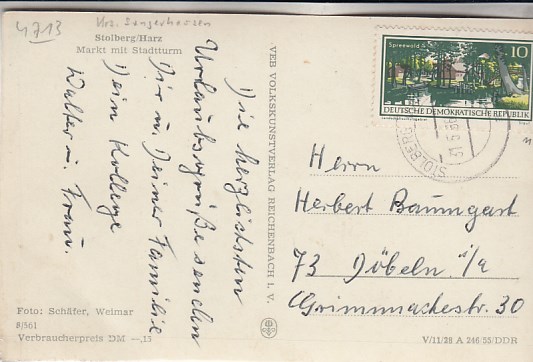 4713
Krs. Sangerhausen
Stolberg/Harz
Markt mit Stadtturm
Die herzlichsten
Urlaubsgrüße senden
Dir u. Deiner Familie
Dein Kollege
Walter u. Frau.
Foto: Schäfer, Weimar
8/561
Verbraucherpreis DM —,15
VEB VOLKSKUNSTVERLAG REICHENBACH I. V.
Spreewald
10
DEUTSCHE DEMOKRATISCHE REPUBLIK
STOLBERG
Herrn
Herbert Baumgart
73 Döbeln i/a
Grimmaischestr. 30
V/11/28 A 246 55/DDR